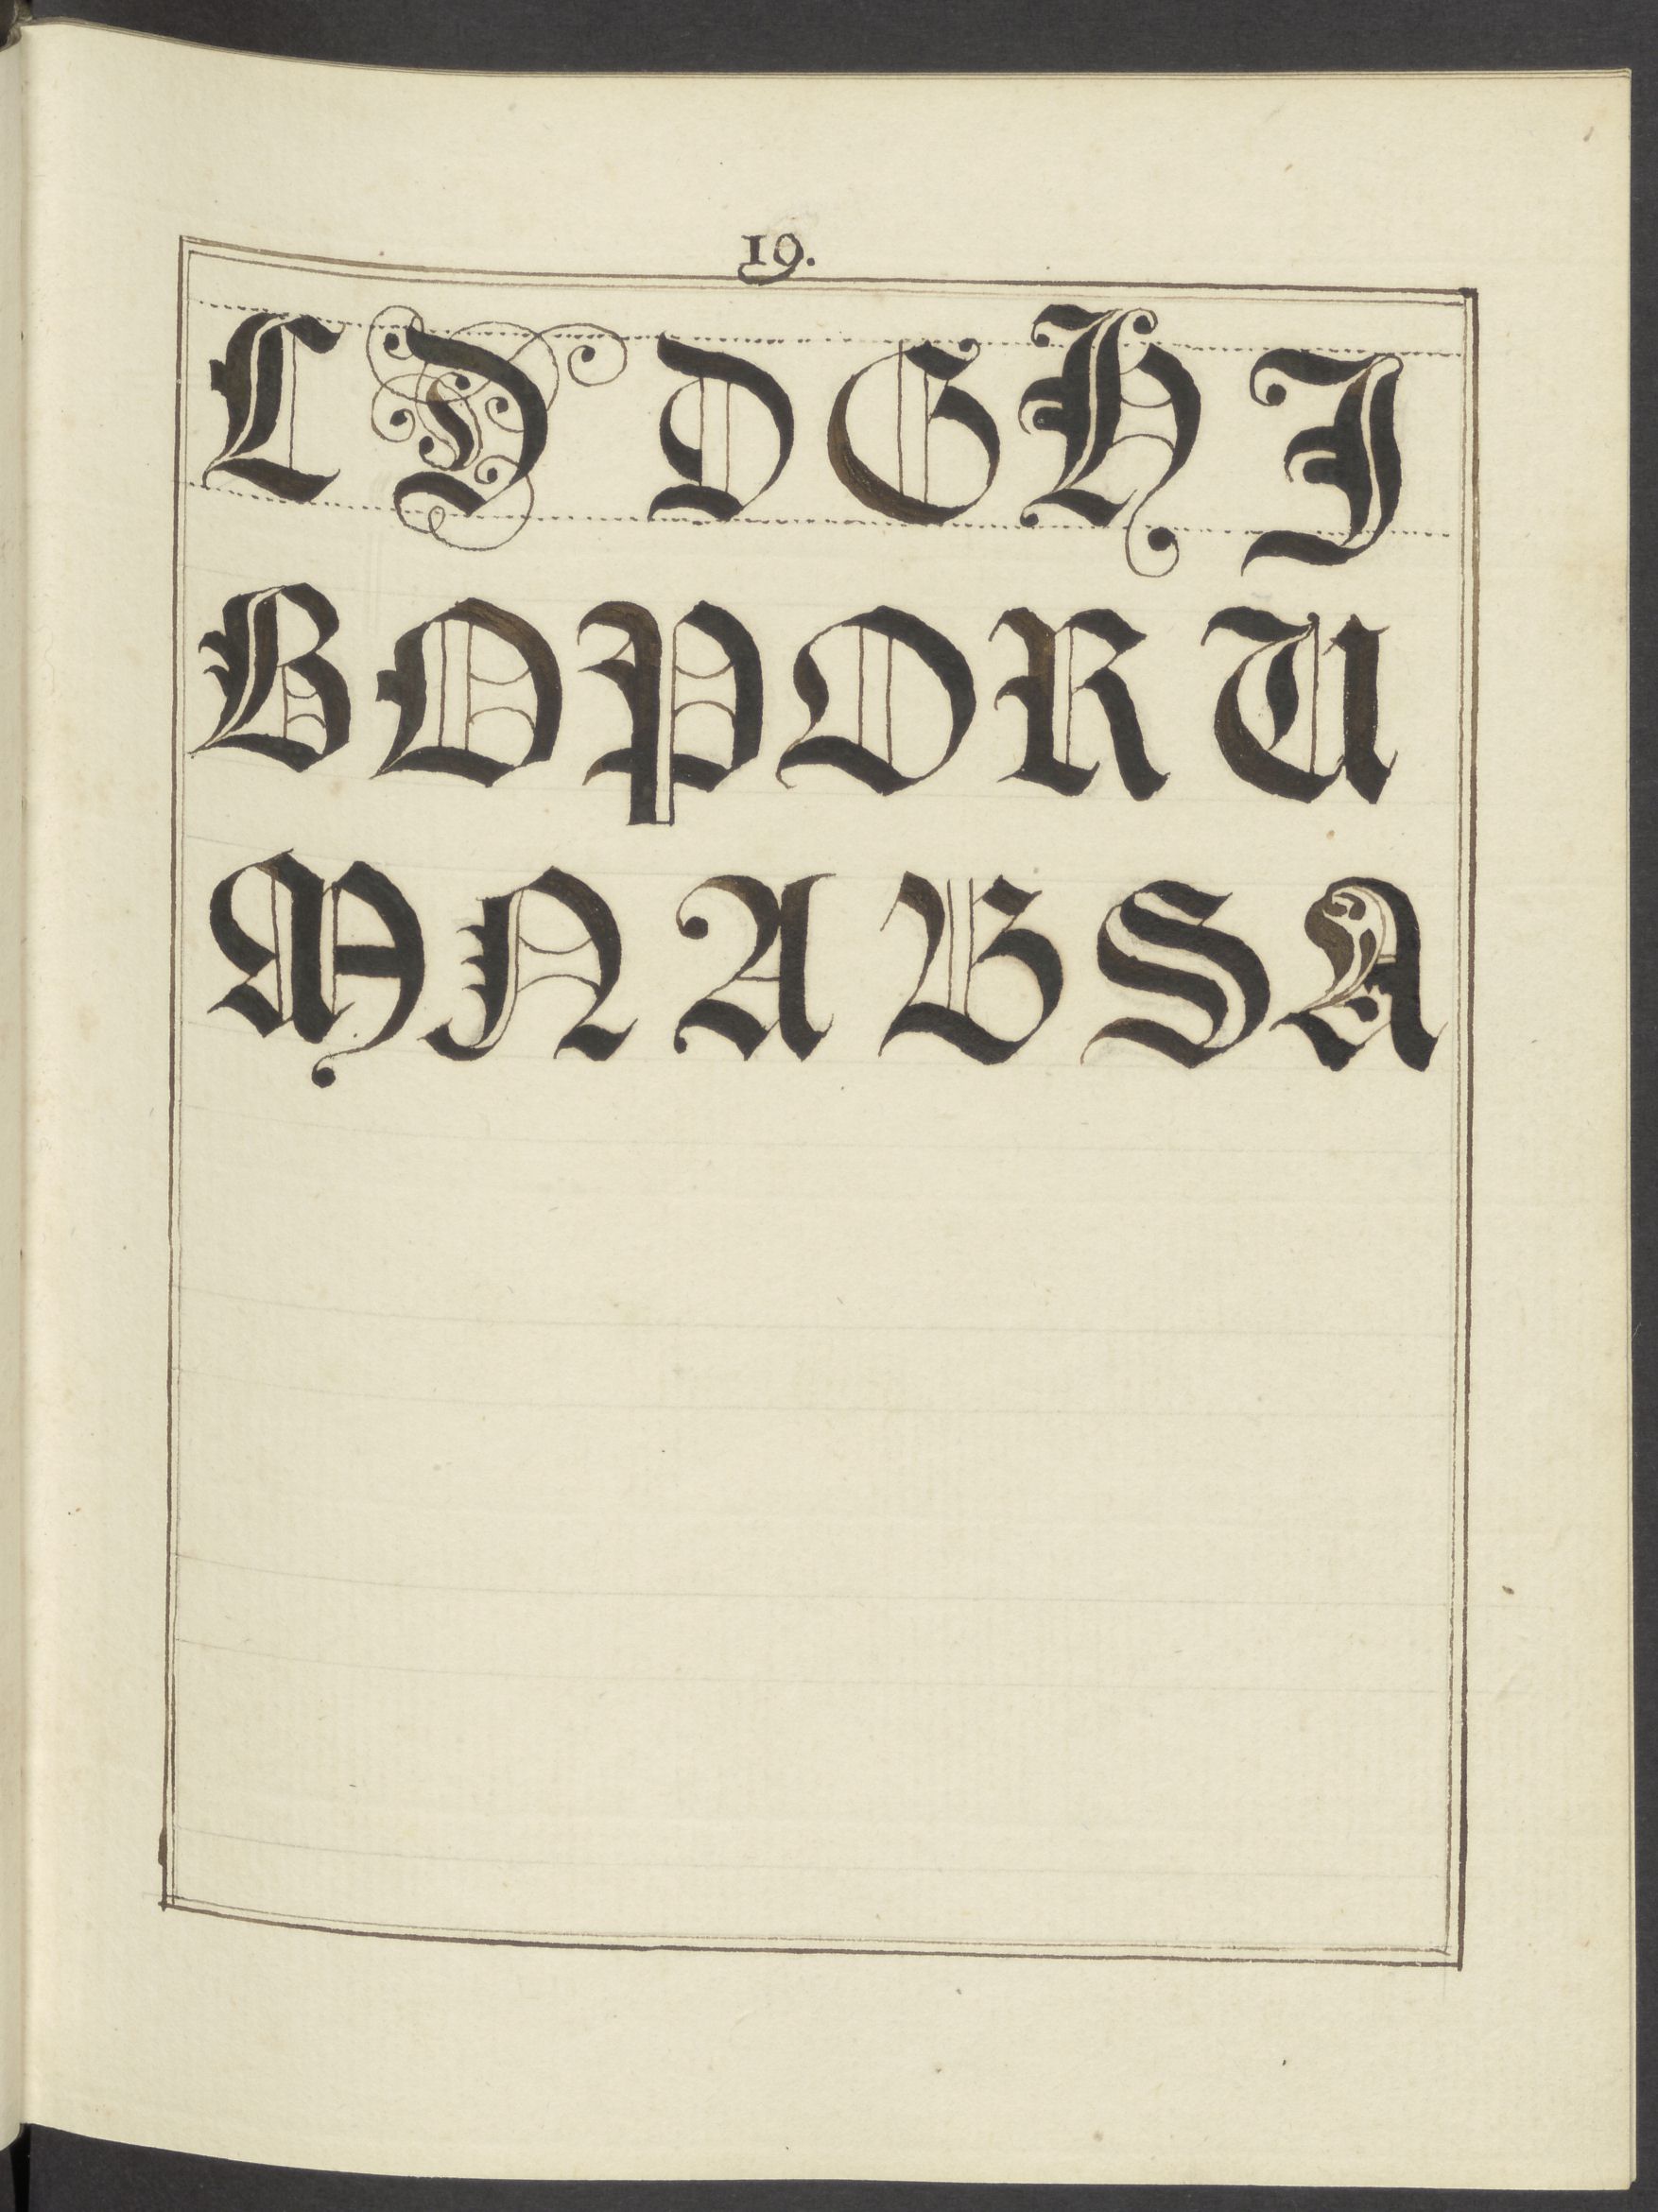 19.
L D D G H J
B O P O R U
M N A B S A